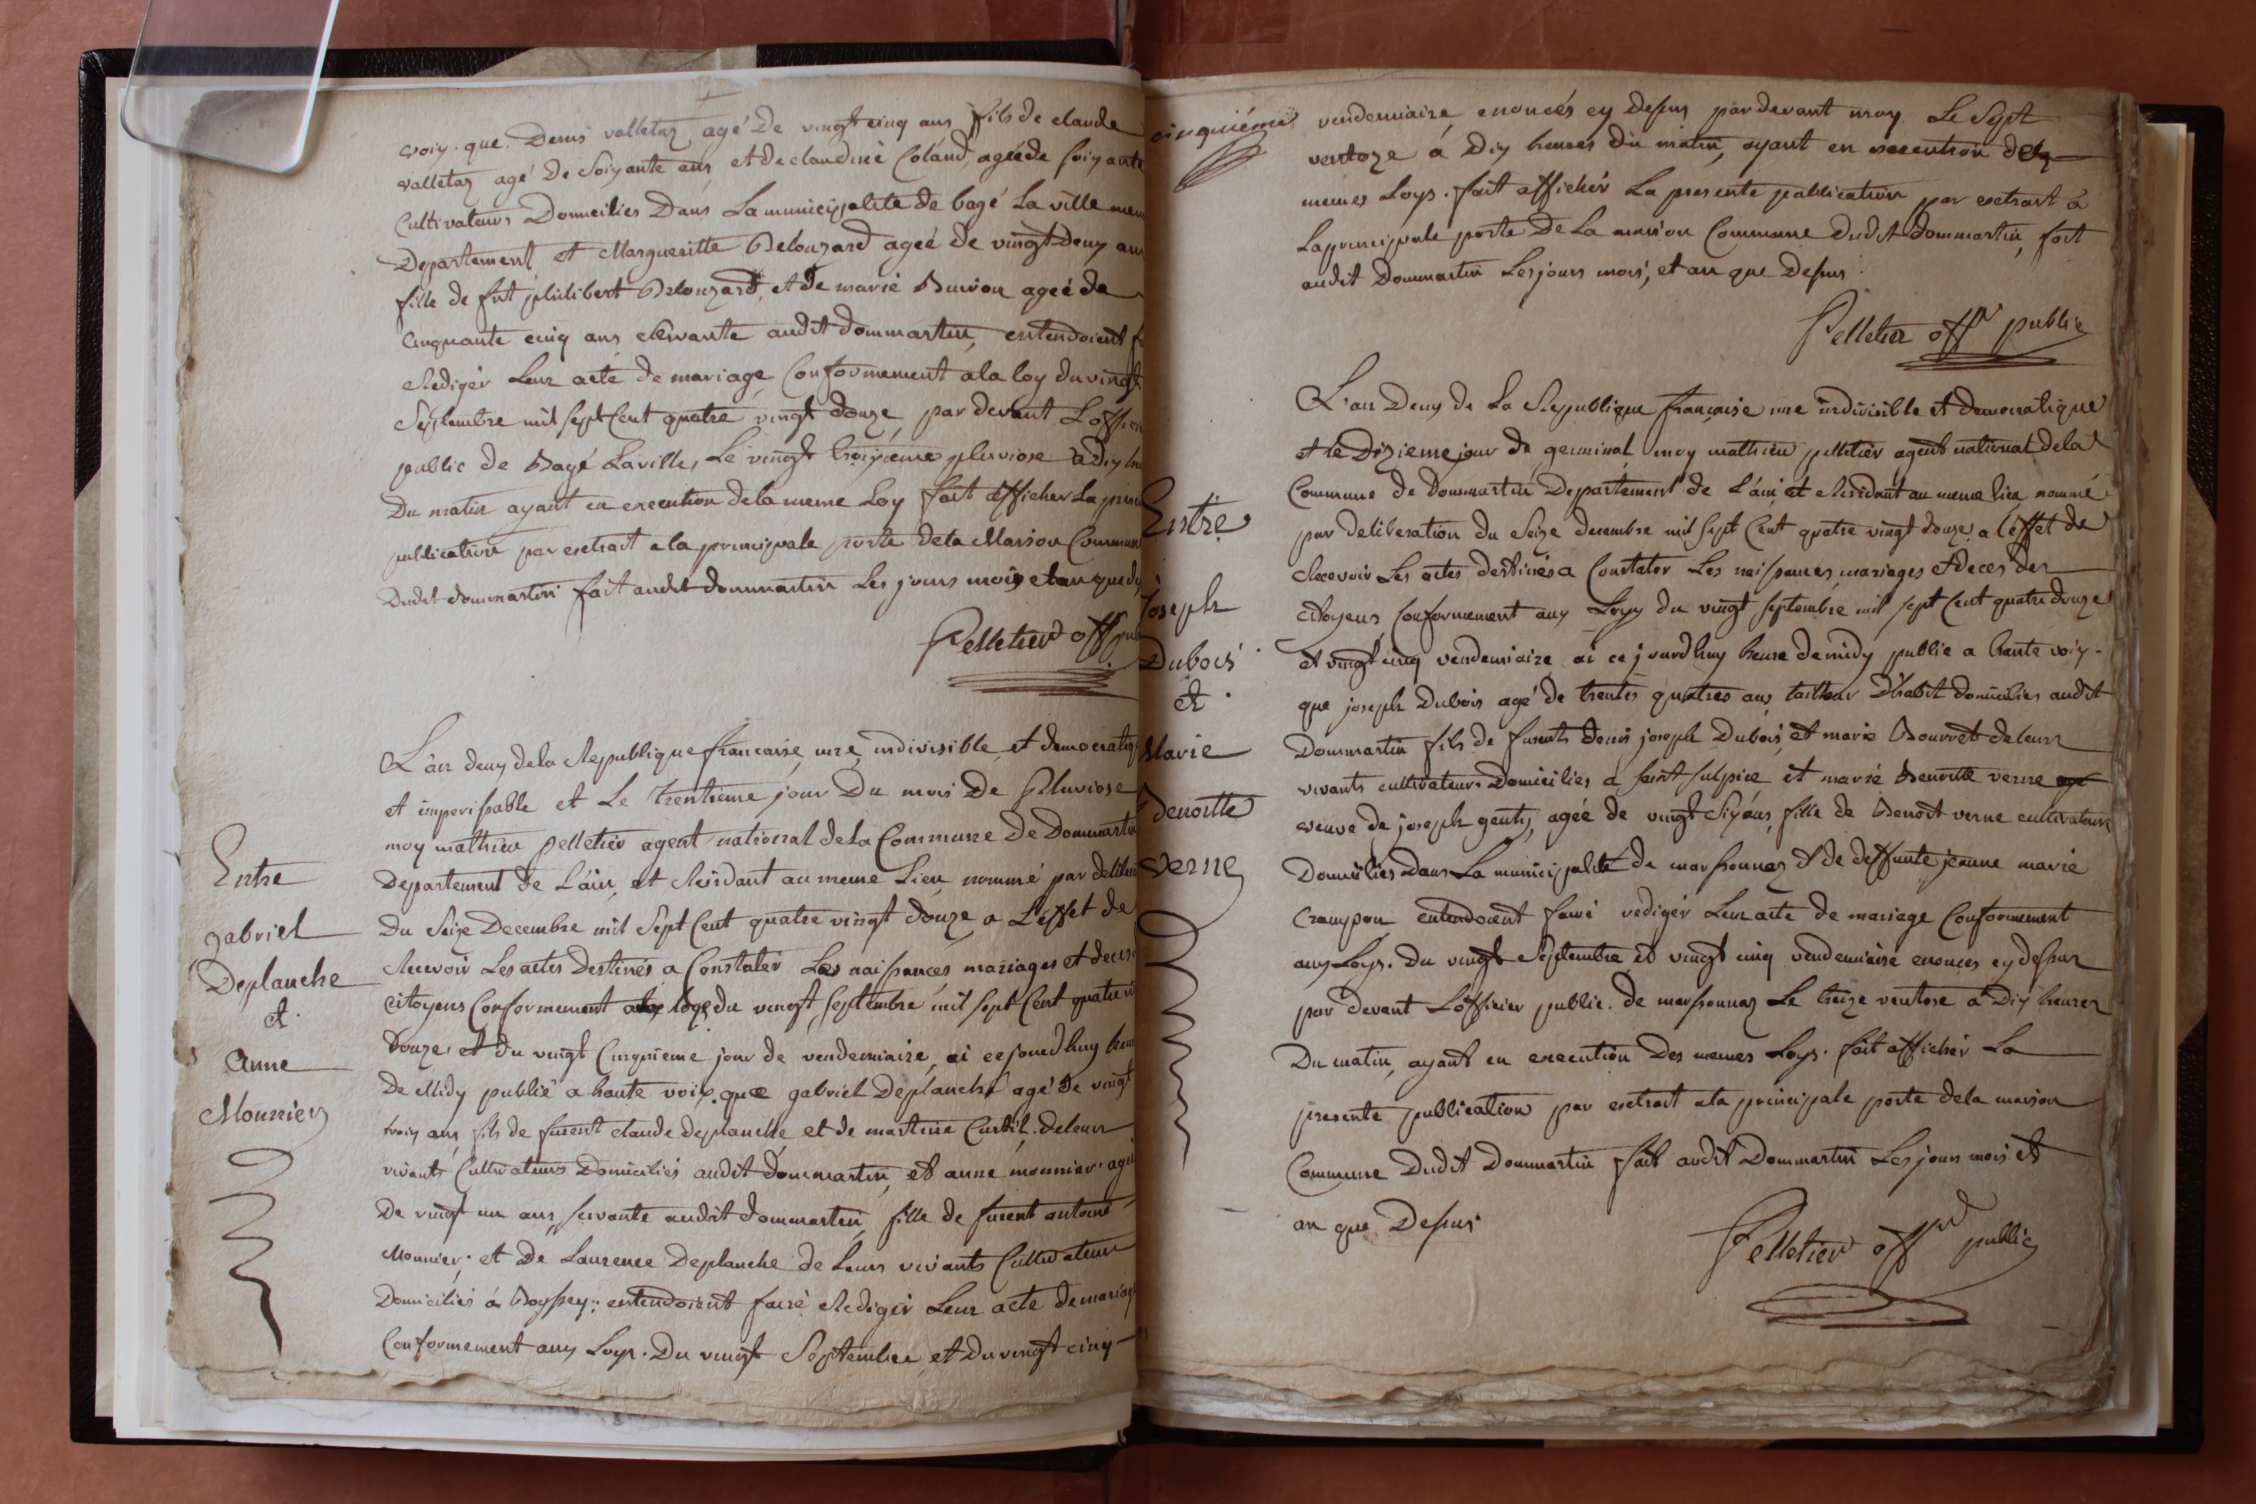 voix que Denis valletaz agé De vingt cinq ans fils de claude
valletaz agé De Soixante ans et de claudine Coland agée de Soixante
Cultivateurs Domiciliés Dans La municipalité de bagé La ville meme
Departement et Margueritte Belouzard ageé de vingt Deux ans
fille de fut philibert Belouzard, et de marie Buiron ageé de
Cinquante cinq ans servante audit dommartin, entendoient
Rediger Leur acte de mariage Conformement a la loy du vingt
Septembre mil sept Cent quatre vingt douze, par devant L'officier
public de Bagé Laville, Le vingt troizieme pluviose a dix
Du matin ayant en execution de la meme Loy fait afficher La
publication par extrait a la principale porte dela Maison Commune
Dudit dommartin fait audit dommartin Les jours mois et an que
Pelletier off pub
L'an deux dela Republique francaise, une, indivisible, et democratiq
et imperissable et Le trentieme jour Du mois De Pluviose
moy mathieu pelletier agent national dela Commune De Dommartin
Departement de L'ain, et Residant au meme Lieu nommé par delib
Du Seize Decembre mil Sept Cent quatre vingt douze a L'effet de
Recevoir Les actes Destinés a Constater Les naissances mariages et deces
citoyens Conformement aux loys du vingt septembre mil sept Cent quatre
Douze, et du vingt Cinquieme jour de vendemiaire, ai ce jourdhuy heure
De Midy publié a haute voix que gabriel Deplanche agé de vingt
trois ans fils de furent claude deplanche et de martine Curtil de leur
vivants Cultivateurs Domiciliés audit dommartin, et anne mounier ageé
De vingt un ans servante audit dommartin fille de furent antoine
Mounier et De Laurence Deplanche de Leurs vivants Cultivateurs
Domiciliés á Boyssey; entendoient faire Rediger Leur acte de mariage
Conformement aux Loys. Du vingt Septembre et Du vingt cinq
Entre
gabriel
Deplanche
et
Anne
Mounier
cinquiéme vendemiaire enoncés cy Dessus par devant moy Le Sept
ventoze á Dix heures du matin, ayant en execution des
memes Loys. fait afficher La presente publication par extrait á
La principale porte De La maison Commune dudit dommartin, fait
audit Dommartin Les jours mois, et an que Dessus
Pelletier offr public
L'an Deux de La Republique française une indivisible et democratique
et le Dizieme jour de germinal moy mathieu pelletier agent national dela
Commune de Dommartin Departement de L'ain, et Residant au meme lieu nommé
par deliberation du Seize decembre mil sept Cent quatre vingt douze a l'effet de
Recevoir Les actes destinés a Constater Les naissances mariages et deces des
citoyens Conformement aux Loys du vingt septembre mil sept Cent quatre douze
et vingt cinq vendemiaire ai ce jourdhuy heure de midy publié a haute voix
que joseph Dubois agé de trentes quatres ans tailleur D'habit domiciliés audit
Dommartin fils de furents denis joseph Dubois, et marie Bourret de leurs
vivants cultivateurs Domiciliés a saint sulpice et marie Benoitte verne
veuve de joseph genty, agée de vingt Six ans, fille de Benoit verne cultivateurs
Domiciliés Dans La municipalité de marsonnaz et de deffunte jeanne marie
Crampon entendoient faire rediger Leur acte de mariage Conformement
aux Loys. Du vingt Septembre et vingt cinq vendemiaire enonces cy dessus
par devant L'officier public de marsonnaz Le treize ventose a Dix heures
Du matin, ayant en execution Des memes Loys. fait afficher La
presente publication par extrait a la principale porte dela maison
Commune Dudit Dommartin fait audit Dommartin Les jours mois et
an que Dessus
Pelletier off public
Entre
Joseph
Dubois
et
Marie
Benoitte
Verne